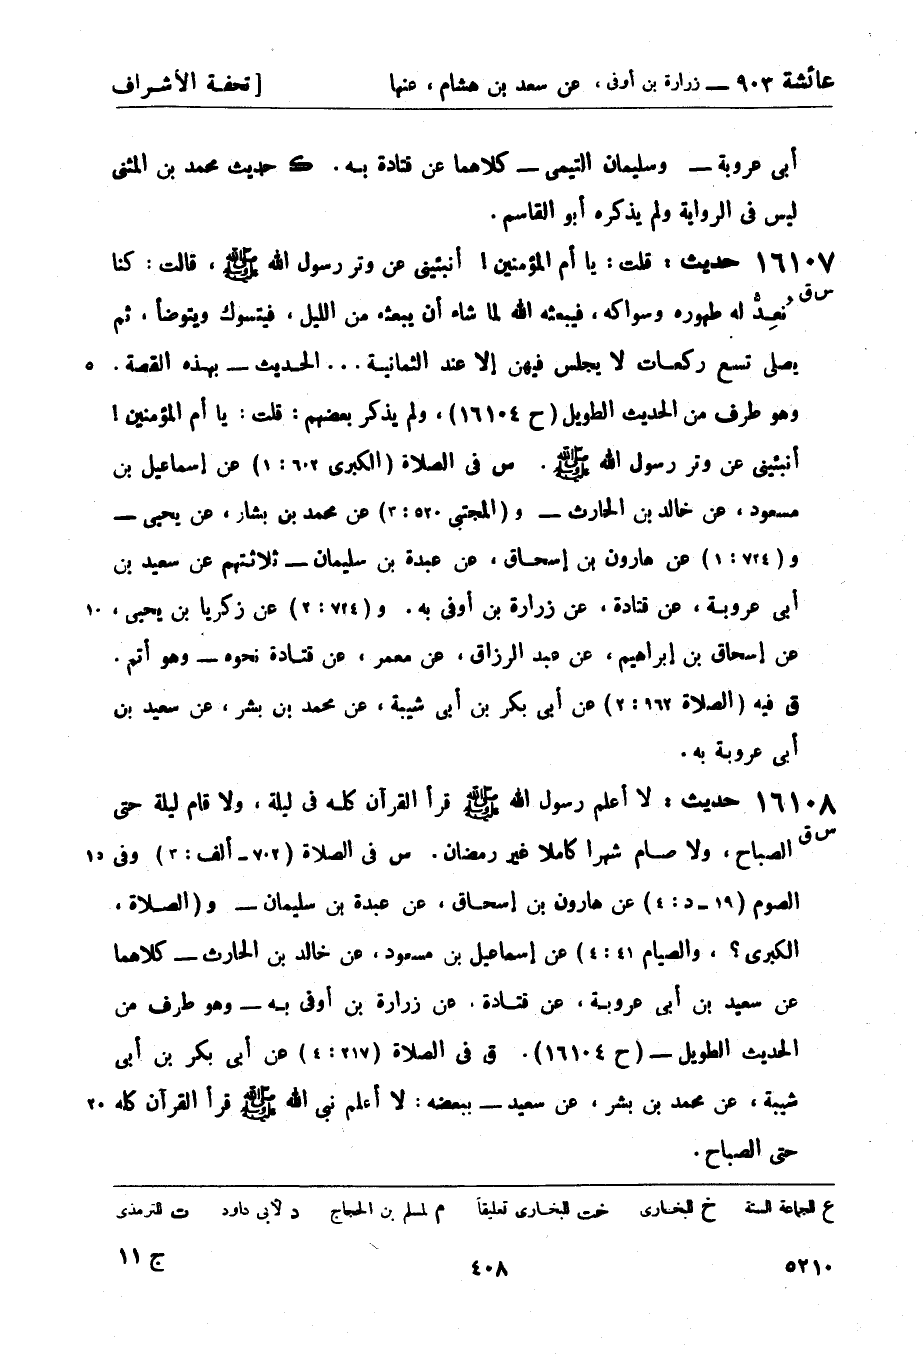 عائشة ٩٠٣ — زرارة بن أوفى ، عن سعد بن هشام ، عنها [ تحفة الأشراف
أبى عروبة — وسليمان التيمى — كلاهما عن قتادة به . ك حديث محمد بن المثنى
ليس فى الرواية ولم يذكره أبو القاسم .
١٦١٠٧ حديث : قلت : يا أم المؤمنين ! أنبئينى عن وتر رسول الله ﷺ ، قالت : كنا
س ق نُعِدُّ له طهوره وسواكه ، فيبعثه الله لما شاء أن يبعثه من الليل ، فيتسوك ويتوضأ ، ثم
يصلى تسع ركعات لا يجلس فيهن إلا عند الثمانية . . . الحديث — بهذه القصة . ٥
وهو طرف من الحديث الطويل ( ح ١٦١٠٤ ) ، ولم يذكر بعضهم : قلت : يا أم المؤمنين !
أنبئينى عن وتر رسول الله ﷺ . س فى الصلاة ( الكبرى ٦٠٢ : ١ ) عن إسماعيل بن
مسعود ، عن خالد بن الحارث — و ( المجتبى ٥٢٠ : ٣ ) عن محمد بن بشار ، عن يحيى —
و ( ٧٢٤ : ١ ) عن هارون بن إسحاق ، عن عبدة بن سليمان — ثلاثتهم عن سعيد بن
أبى عروبة ، عن قتادة ، عن زرارة بن أوفى به . و ( ٧٢٤ : ٢ ) عن زكريا بن يحيى ، ١٠
عن إسحاق بن إبراهيم ، عن عبد الرزاق ، عن معمر ، عن قتادة نحوه — وهو أتم .
ق فيه ( الصلاة ٩٦٢ : ٢ ) عن أبى بكر بن أبى شيبة ، عن محمد بن بشر ، عن سعيد بن
أبى عروبة به .
١٦١٠٨ حديث : لا أعلم رسول الله ﷺ قرأ القرآن كله فى ليلة ، ولا قام ليلة حتى
س ق الصباح ، ولا صام شهرا كاملا غير رمضان . س فى الصلاة ( ٧٠٢ - ألف : ٣ ) وفى ١٥
الصوم ( ١٩ - د : ٤ ) عن هارون بن إسحاق ، عن عبدة بن سليمان — و ( الصلاة ،
الكبرى ؟ ، والصيام ٤١ : ٤ ) عن إسماعيل بن مسعود ، عن خالد بن الحارث — كلاهما
عن سعيد بن أبى عروبة ، عن قتادة ، عن زرارة بن أوفى به — وهو طرف من
الحديث الطويل — ( ح ١٦١٠٤ ) . ق فى الصلاة ( ٢١٧ : ٤ ) عن أبى بكر بن أبى
شيبة ، عن محمد بن بشر ، عن سعيد — ببعضه : لا أعلم نبى الله ﷺ قرأ القرآن كله ٢٠
حتى الصباح .
ع للجماعة الستة خ للبخارى خت للبخارى تعليقاً م لمسلم بن الحجاج د لأبى داود ت للترمذى
٥٢١٠ ٤٠٨ ج ١١